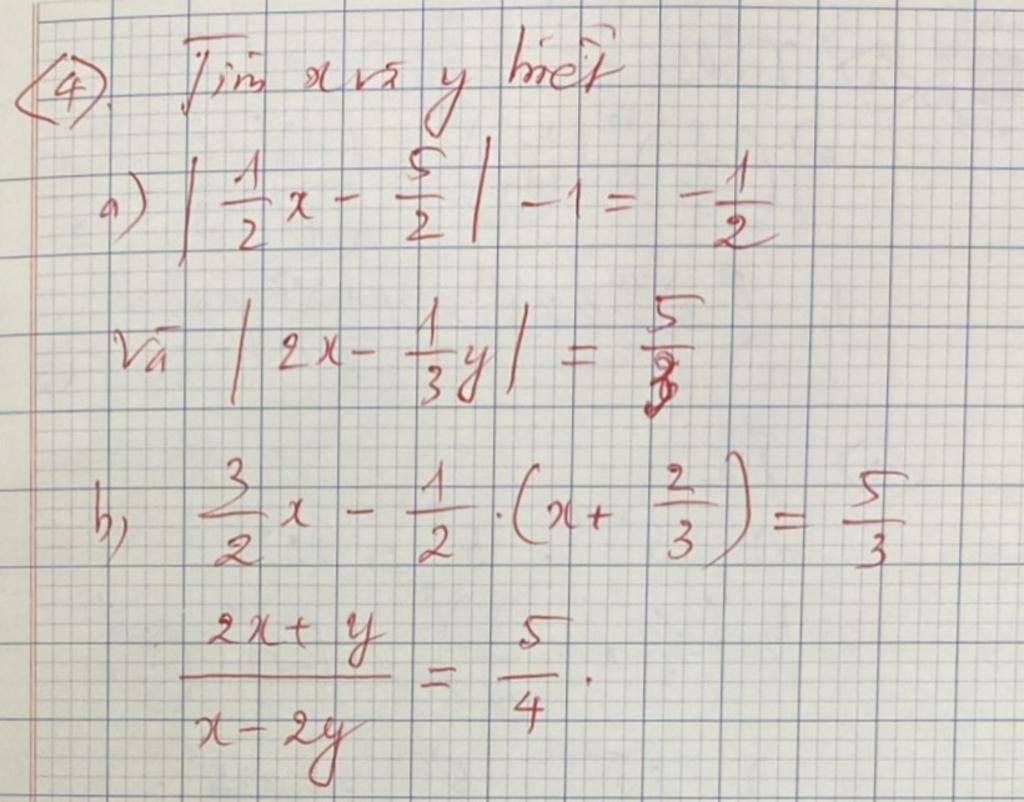 ④. Tìm x và y biết
a) | 1/2 x - 5/2 | - 1 = - 1/2
Và | 2x - 1/3 y | = 5/3
b, 3/2 x - 1/2 . (x + 2/3) = 5/3
(2x + y)/(x - 2y) = 5/4 .